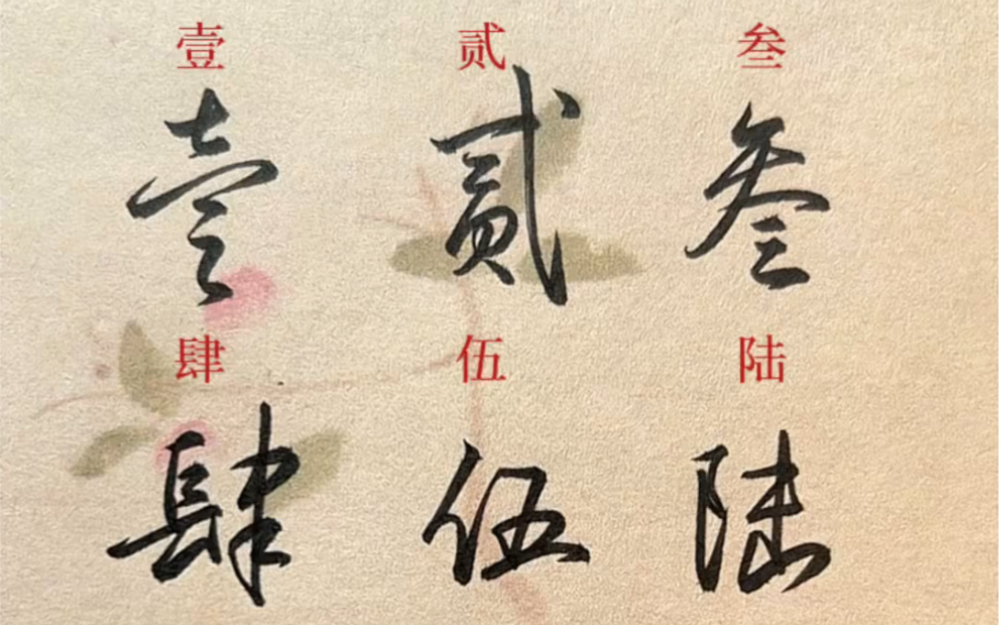 壹 贰 叁
壹 贰 叁
肆 伍 陆
肆 伍 陆